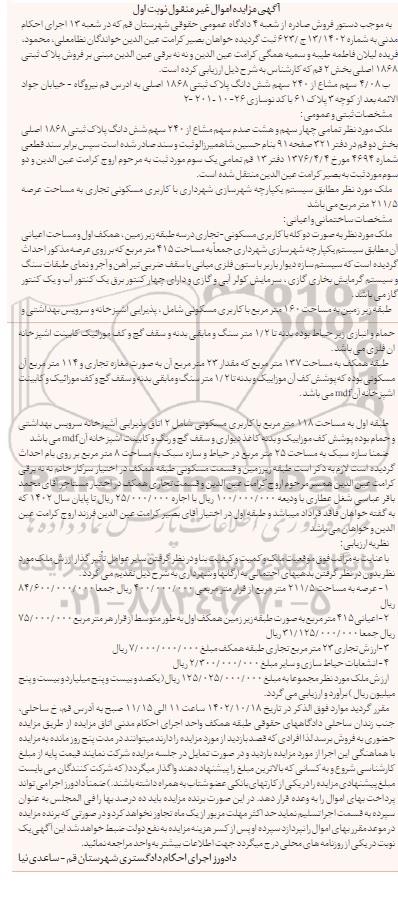 آگهی مزایده اموال غیر منقول نوبت اول
به موجب دستور فروش صادره از شعبه ۴ دادگاه عمومی حقوقی شهرستان قم که در شعبه ۱۳ اجرای احکام
مدنی به شماره ۱۳/۱۴۰۲ج/۶۲۳ ثبت گردیده خواهان بصیر کرامت عین الدین خواندگان نظامعلی، محمود،
فریده لیلان فاطمه طیبه و سمیه همگی کرامت عین الدین و ننه نه برقی عین الدین مبنی بر فروش پلاک ثبتی
۱۸۶۸ اصلی بخش ۲ قم که کارشناس به شرح ذیل ارزیابی کرده است.
ب ۴/۰۸ سهم مشاع از ۲۴۰ سهم شش دانگ پلاک ثبتی ۱۸۶۸ اصلی به ادرس قم نیروگاه - خیابان جواد
الائمه بعد از کوچه ۳ پلاک ۶۱ با کد نوسازی ۲۶-۱۰-۲۰۱-۲
مشخصات ثبتی و عمومی:
ملک مورد نظر تمامی چهار سهم و هشت صدم سهم مشاع از ۲۴۰ سهم شش دانگ پلاک ثبتی ۱۸۶۸ اصلی
بخش دو قم در دفتر ۳۲۱ صفحه ۹۱ بنام حسین شاهمیرزالو ثبت و سند صادر شده است سپس برابر سند قطعی
شماره ۴۶۹۴ مورخ ۱۳۷۶/۴/۴ دفتر ۱۳ قم تمامی یک سوم مورد ثبت به مرحوم اروج کرامت عین الدین و دو
سوم مورد ثبت به بصیر کرامت عین الدین منتقل شده است.
ملک مورد نظر مطابق سیستم یکپارچه شهرسازی شهرداری با کاربری مسکونی تجاری به مساحت عرصه
۲۱۱/۵ متر مربع می باشد
مشخصات ساختمانی و اعیانی:
ملک مورد نظر به صورت دو کله با کاربری مسکونی-تجاری در سه طبقه زیر زمین، همکف اول و مساحت اعیانی
آن مطابق سیستم یکپارچه شهرسازی شهرداری جمعا به مساحت ۴۱۵ متر مربع که بر روی عرصه مذکور احداث
گردیده است که سیستم سازه دیوار باربر با ستون فلزی میانی با سقف ضربی تیر آهن و آجر و نمای طبقات سنگ
و سیستم گرمایش بخاری گازی، سرمایش کولر آبی و گازی و دارای چهار کنتور برق یک کنتور آب و یک کنتور
گاز می باشد.
طبقه زیر زمین به مساحت ۱۶۰ متر مربع با کاربری مسکونی شامل، پذیرایی اشپزخانه و سرویس بهداشتی و
حمام و انباری زیر حیاط بوده بدنه تا ۱/۲ متر سنگ و مابقی بدنه و سقف گچ و کف موزائیک کابینت اشپزخانه
ان فلزی می باشد.
طبقه همکف به مساحت ۱۳۷ متر مربع که مقدار ۲۳ متر مربع آن به صورت مغازه تجاری و ۱۱۴ متر مربع آن
مسکونی بوده که پوشش کف آن موزاییک و بدنه تا ۱/۲ متر سنگ و مابقی بدنه و سقف گچ و کف موزائیک و کابینت
اشپزخانه آن mdf می باشد.
طبقه اول به مساحت ۱۱۸ متر مربع با کاربری مسکونی شامل ۲ اتاق پذیرایی آشپزخانه سرویس بهداشتی
و حمام بوده پوشش کف موزاییک و بدنه کاغذ دیواری و سقف گچ و رنگ و کابینت اشپزخانه آن mdf می باشد
ضمنا سازه سبک به مساحت ۲۵ متر مربع در حیاط و سازه سبک به مساحت ۸ متر مربع بر روی بام احداث
گردیده است لازم به ذکر است طبقه زیرزمین و قسمت مسکونی طبقه همکف در اختیار سرکار خانم ننه نه برقی
کرامت عین الدین همسر مرحوم اروج کرامت عین الدین و قسمت تجاری همکف در اختیار مستاجر آقای محمد
باقر عباسی شغل عطاری با ودیعه ۱۰۰/۰۰۰/۰۰۰ ریال با اجاره ۲۵/۰۰۰/۰۰۰ ریال تا پایان سال ۱۴۰۲ که
به گفته خواهان فاقد قرارداد میباشد و طبقه اول در اختیار آقای بصیر کرامت عین الدین فرزند اروج کرامت عین
الدین و خواهان می باشد
نظریه ارزیابی:
با عنایت به مراتب فوق موقعیت ملک و کمیت و کیفیت بنا و در نظر گرفتن سایر عوامل تأثیر گذار ارزش ملک مورد
نظر بدون در نظر گرفتن بدهیهای احتمالی به ارگانها و شهرداری به شرح ذیل تقدیم می گردد.
۱- عرصه به مساحت ۲۱۱/۵ متر مربع از قرار متر مربعی ۴۰۰/۰۰۰/۰۰۰ ریال جمعا ۸۴/۶۰۰/۰۰۰/۰۰۰
ریال
۲- اعیانی ۴۱۵ متر مربع به صورت طبقه زیر زمین همکف اول به طور متوسط از قرار هر متر مربع ۷۵/۰۰۰/۰۰۰
ریال جمعا ۳۱/۱۲۵/۰۰۰/۰۰۰ ریال
۳- ارزش تجاری ۲۳ متر مربع تجاری طبقه همکف مبلغ ۷/۰۰۰/۰۰۰/۰۰۰ ریال
۴- انشعابات حیاط سازی و سایر مبلغ ۲/۳۰۰/۰۰۰/۰۰۰ ریال
ارزش ملک مورد نظر مجموعا به مبلغ ۱۲۵/۰۲۵/۰۰۰/۰۰۰ ریال (یکصد و بیست و پنج میلیارد و بیست و پنج
میلیون ریال) برآورد و ارزیابی می گردد.
مقرر گردید موارد فوق الذکر در تاریخ ۱۴۰۲/۱۰/۱۸ ساعت ۱۱ الی ۱۱/۱۵ صبح به آدرس قم، خ ساحلی،
جنب زندان ساحلی دادگاههای حقوقی طبقه همکف واحد اجرای احکام مدنی اتاق مزایده از طریق مزایده
حضوری به فروش برسد لذا افرادی که قصد بازدید از مورد مزایده را دارند میتوانند در مدت پنج روز مانده به مزایده
با هماهنگی این اجرا از مورد مزایده بازدید و در صورت تمایل در جلسه مزایده شرکت نمایند قیمت پایه از مبلغ
کارشناسی شروع و به کسانی که بالاترین مبلغ را پیشنهاد دهند واگذار میگردد (که شرکت کنندگان می بایست
مبلغ پیشنهادی مزایده را در یکی از کارتهای بانکی عضو شتاب به همراه داشته باشند.) ضمناً دادورز اجرا می تواند
پرداخت بهای اموال را به وعده قرار دهد. در این صورت برنده مزایده باید ده درصد بها را فی المجلس به عنوان
سپرده به قسمت اجرا تسلیم نماید حد اکثر مهلت مزبور از یک ماه تجاوز نخواهد کرد و در صورتی که برنده مزایده
در موعد مقرر بهای اموال را نپردازد سپرده او پس از کسر هزینه مزایده به نفع دولت ضبط خواهد شد این آگهی یک
نوبت در یکی از روزنامه های محلی درج میگردد جهت اطلاعات بیشتر به واحد مراجعه نمائید.
دادورز اجرای احکام دادگستری شهرستان قم - ساعدی نیا
۰۲۱-۸۸۳۴۹۶۷۰-۵